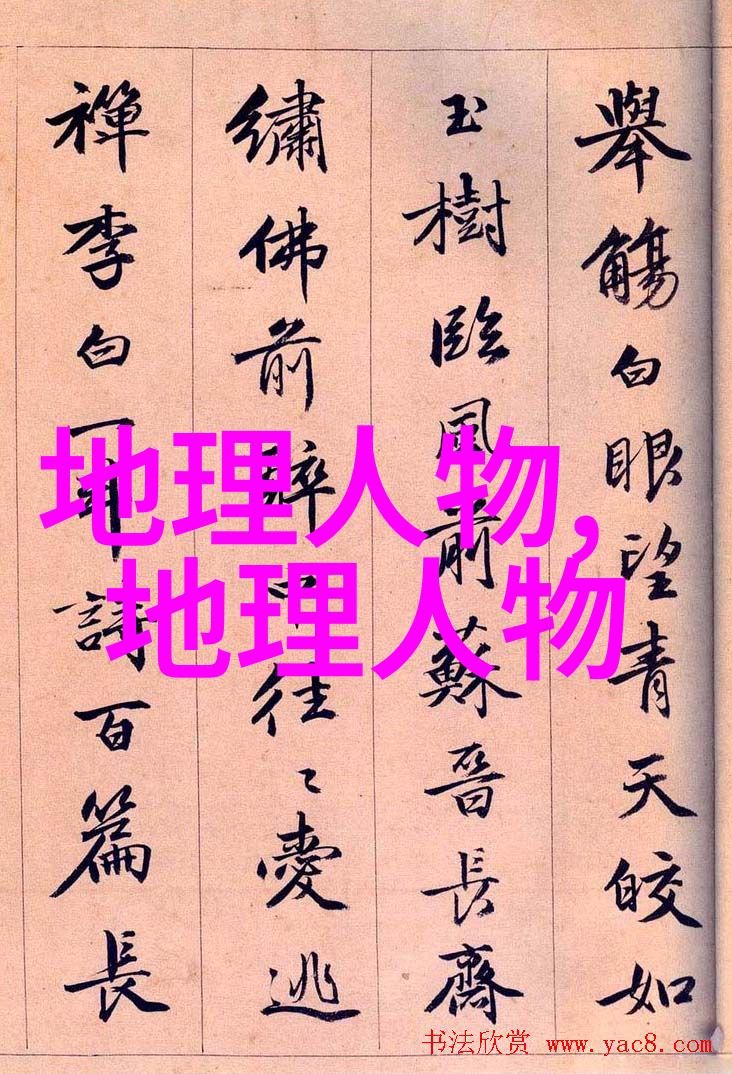 舉觴白眼望青天皎如
玉樹臨風前蘇晉長齋
繡佛前醉中往〻愛逃
禪李白一斗詩百篇長
地理人物,
地理人物
书法欣赏 www.yac8.com